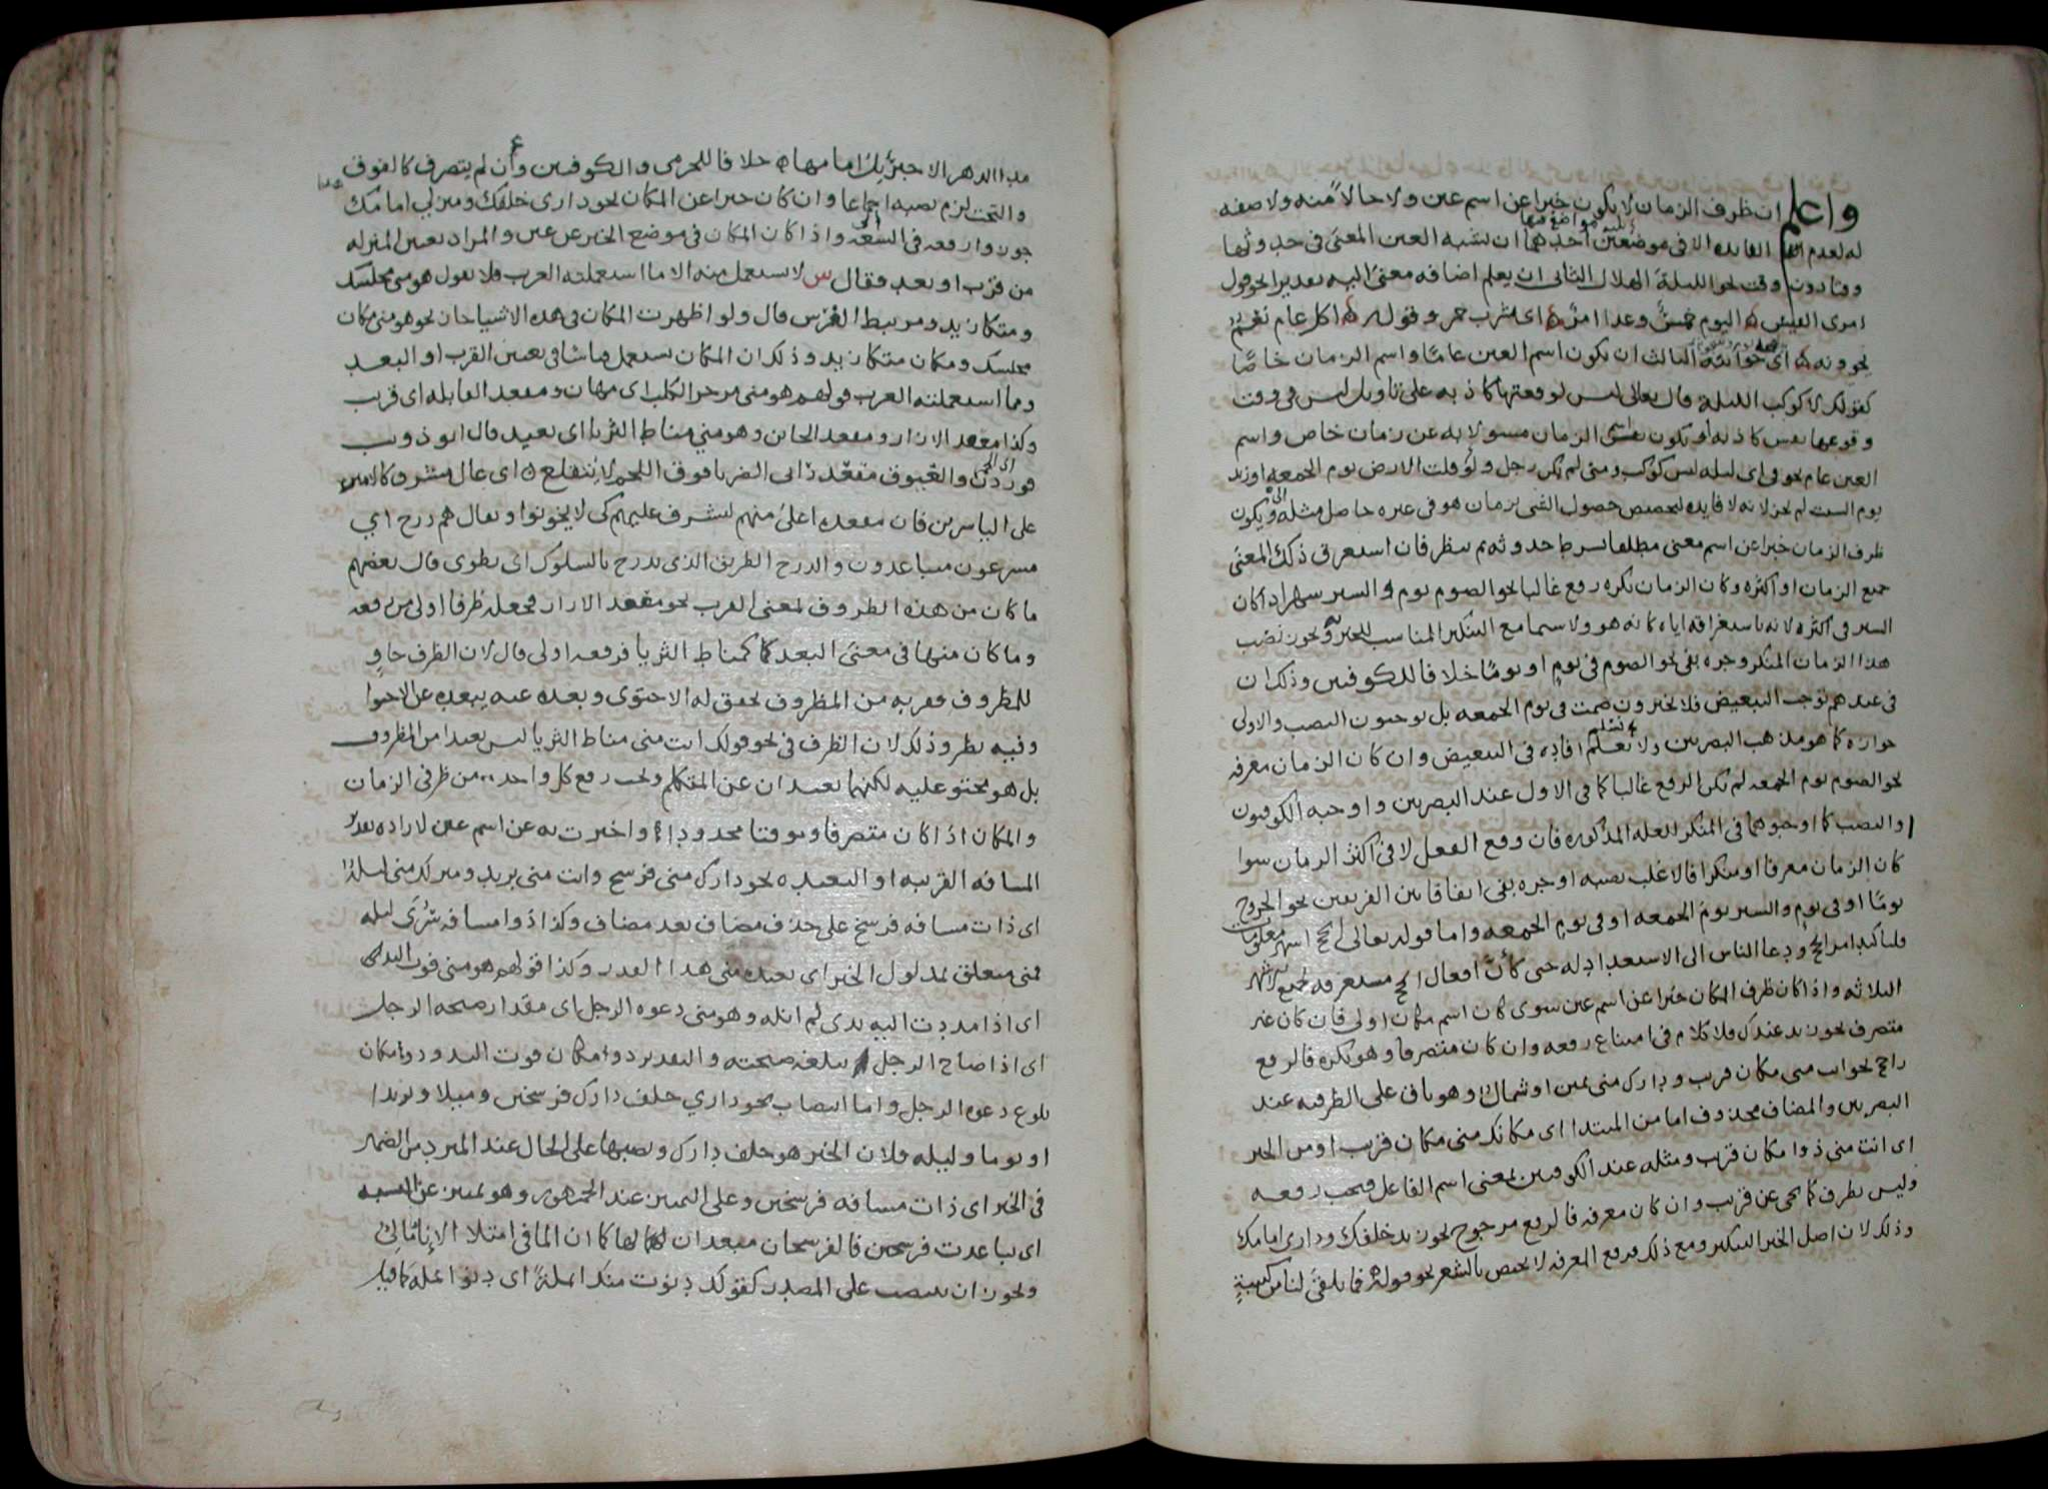 واعلم ان ظرف الزمان لا يكون خبرا عن اسم عين ولا حالا منه ولا صفه
له لعدم الفايده الا في موضعين احدهما ان يشبه العين المعنى في حدوثها
وقتا دون وقت نحو الليلة الهلال الثاني ان يعلم اضافه معنى اليه تقديرا نحو قول
امرى القيس اليوم خمر وغدا امر اي شرب خمر وقوله اكل عام نعم
تحوونه اي حوايه الثالث ان يكون اسم العين عاما واسم الزمان خاصا
كقولك لا كوكب الليلة قال تعالى ليس لوقعتها كاذبه على تاويل ليس في وقت
وقوعها نفس كاذبه او يكون اسم الزمان مسولا به عن زمان خاص واسم
العين عام نحو في اى ليله ليس كوكب ومتى لم يكن رجل ولو قلت الارض يوم الجمعه او زيد
يوم السبت لم يجز لانه لا فايده لتخصيص حصول الشى بزمان هو في غيره حاصل مثله ويكون
ظرف الزمان خبرا عن اسم معنى مطلقا بشرط حدوثه ثم ينظر فان استغرق ذلك المعنى
جميع الزمان او اكثره وكان الزمان نكره رفع غالبا نحو الصوم يوم والسير شهر اذا كان
السير في اكثره لانه باستغراقه اياه كانه هو ولا سيما مع التنكير المناسب للخبريه ويجوز نصب
هذا الزمان المنكر وجره بفى نحو الصوم في يوم او يوما خلافا للكوفيين وذلك ان
في عندهم توجب التبعيض فلا يجيزون صمت في يوم الجمعه بل يوجبون النصب والاولى
جوازه كما هو مذهب البصريين ولا نعلم افاده في التبعيض وان كان الزمان معرفه
نحو الصوم يوم الجمعه لم يكن الرفع غالبا كما في الاول عند البصريين واوجبه الكوفيون
والنصب كما اوجبوهما في المنكر للعله المذكوره فان وقع الفعل لا في اكثر الزمان سوا
كان الزمان معرفا او منكرا فالاغلب نصبه او جره بفى اتفاقا بين الفريقين نحو الخروج
يوما او في يوم والسير يوم الجمعه او في يوم الجمعه واما قوله تعالى الحج اشهر معلومات
فلتاكيد امر الحج ودعا الناس الى الاستعداد له حتى كان افعال الحج مستغرقه لجميع الاشهر
الثلاثه واذا كان ظرف المكان خبرا عن اسم عين سوى كان اسم مكان اولى فان كان غير
متصرف نحو زيد عندك فلا كلام في امتناع رفعه وان كان متصرفا وهو نكره فالرفع
راجح نحو انت منى مكان قريب ودارك منى يمين او شمال وهو باق على الظرفيه عند
البصريين والمضاف محذوف اما من المبتدا اى مكانك منى مكان قريب او من الخبر
اى انت منى ذو مكان قريب ومثله عند الكوفيين بمعنى اسم الفاعل فيجب رفعه
وليس بظرف كما يحى عن قريب وان كان معرفه فالرفع مرجوح نحو زيد خلفك ودارى امامك
وذلك لان اصل الخبر التنكير ومع ذلك فرفع المعرفه لا يختص بالشعر نحو قوله فما يلقى لنا من كتيبة
الدهر الا جبرئيل امامها خلافا للجرمى والكوفيين وان لم يتصرف كالفوق
والتحت لزم نصبه اجماعا وان كان خبرا عن المكان نحو دارى خلفك ومنزلى امامك
جوزوا رفعه في السعه واذا كان المكان في موضع الخبر عن عين والمراد تعيين المنزله
من قرب او بعد فقال س لا يستعمل منه الا ما استعملته العرب فلا تقول هو منى مجلسك
ومتكا زيد ومربط الفرس قال ولو اظهرت المكان في هذه الاشيا جاز نحو هو منى مكان
مجلسك ومكان متكا زيد وذلك ان المكان يستعمل قياسا في تعيين القرب او البعد
ومما استعملته العرب قولهم هو منى مزجر الكلب اى مهان ومقعد القابله اى قرب
وكذا مقعد الازار ومقعد الخاتن وهو منى مناط الثريا اى بعيد قال ابو ذويب
فوردن والعيوق مقعد رابى الضرباء فوق النجم لا يتتلع اى عال مشرف كالامين
على الياسرين فان مقعده اعلى منهم ليشرف عليهم كى لا يخونوا ويقال هم درج اى
مسرعون متباعدون والدرج الطريق الذى يدرج بالسلوك اى يطوى قال بعضهم
ما كان من هذه الظروف لمعنى القرب نحو مقعد الازار فجعله ظرفا اولى من رفعه
وما كان منها في معنى البعد كمناط الثريا فرفعه اولى قال لان الظرف حاو
للمظروف فقربه من المظروف تحقق له الاحتوى وبعده عنه يبعده عن الاحتوا
وفيه نظر وذلك لان الظرف في نحو قولك انت منى مناط الثريا ليس بعيدا من المظروف
بل هو محتو عليه لكنهما بعيدان عن المتكلم ويجب رفع كل واحد من ظرفى الزمان
والمكان اذا كان متصرفا وموقتا محدودا واخبرت به عن اسم عين لاراده تقدير
المسافه القريبه او البعيده نحو دارك منى فرسخ وانت منى بريد ومنزلك منى ليله
اى ذات مسافه فرسخ على حذف مضاف بعد مضاف وكذا ذو مسافه سرى ليله
فمنى متعلق بمدلول الخبر اى بعيده منى هذا القدر وكذا قولهم هو منى فوت اليد
اى اذا مددت اليه يدى لم انله وهو منى دعوه الرجل اى مقدار صيحه الرجل
اى اذا صاح الرجل تبلغه صيحته والتقدير ذو مكان فوت اليد وذو مكان
بلوغ دعوه الرجل واما انتصاب نحو دارى خلف دارك فرسخين وميلا وبريدا
او يوما وليله فلان الخبر هو خلف دارك ونصبها على الحال عند المبرد من الضمير
في الخبر اى ذات مسافه فرسخين وعلى التمييز عند الجمهور وهو تمييز عن النسبه
اى تباعدت فرسخين فالفرسخان مبعدان لها كما ان الما في امتلا الانا مالئ
ويجوز ان ينتصب على المصدر كقولك دنوت منك انملة اى دنو انمله